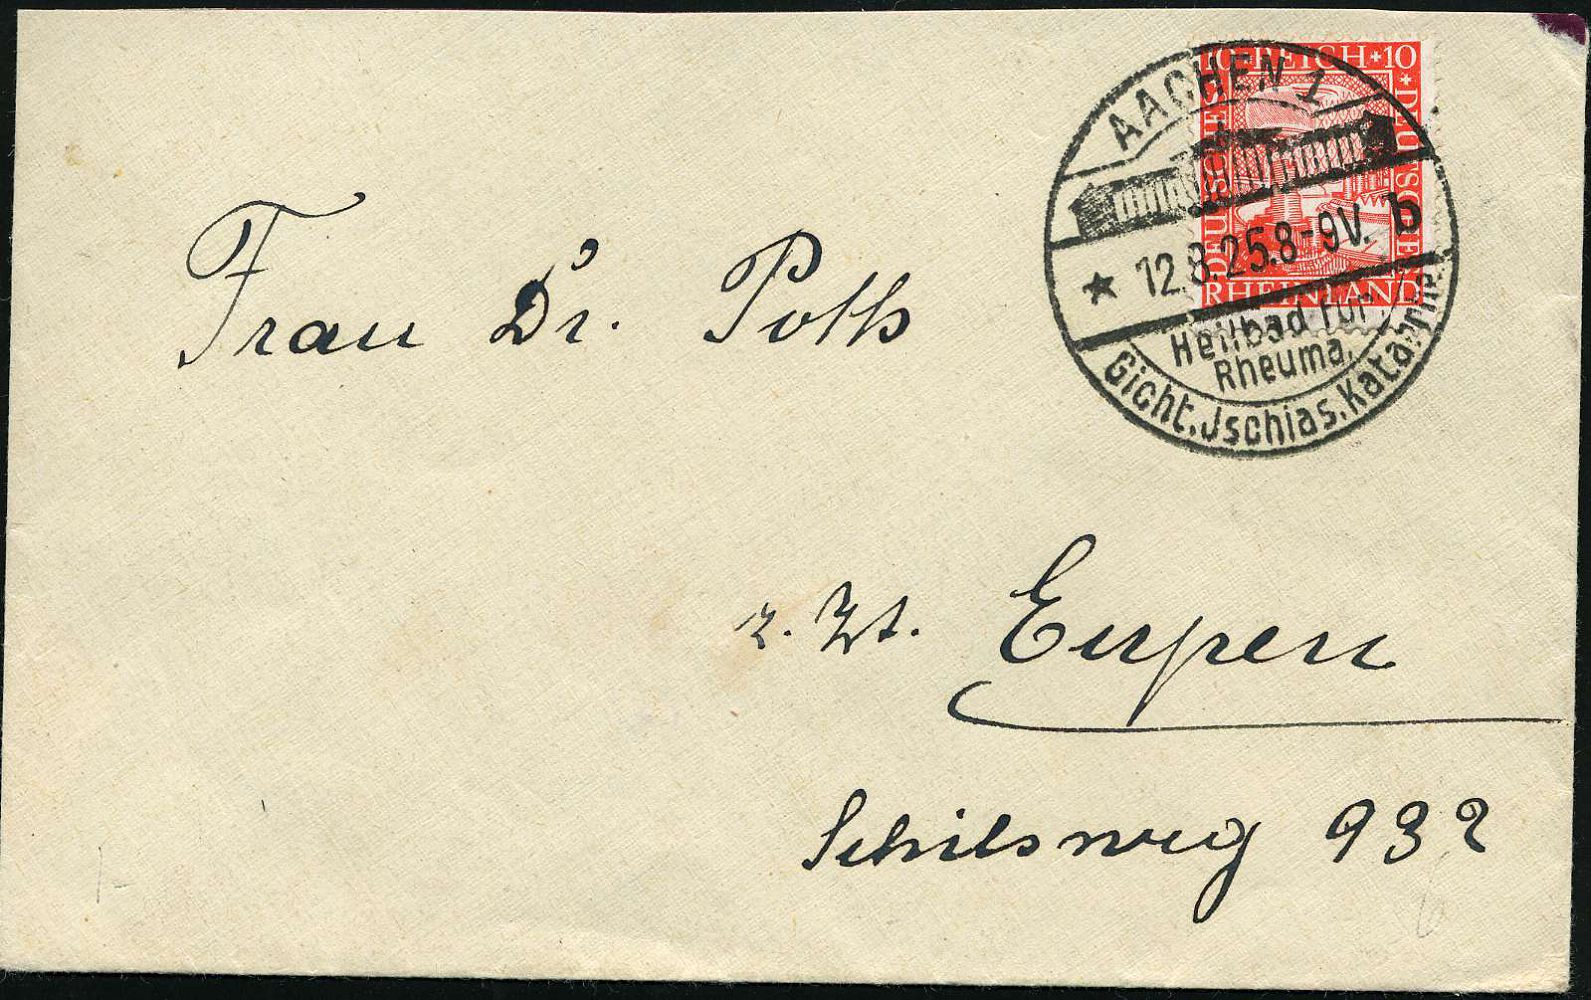 10 + REICH + 10
DEUTSCHES
+ DEUTSCHES
RHEINLAND
AACHEN 1
* 12.8.25.8-9V. b
Heilbad für
Rheuma,
Gicht, Jschias, Katarrhe.
Frau Dr. Poth
z. Zt. Eupen
Schilsweg 932